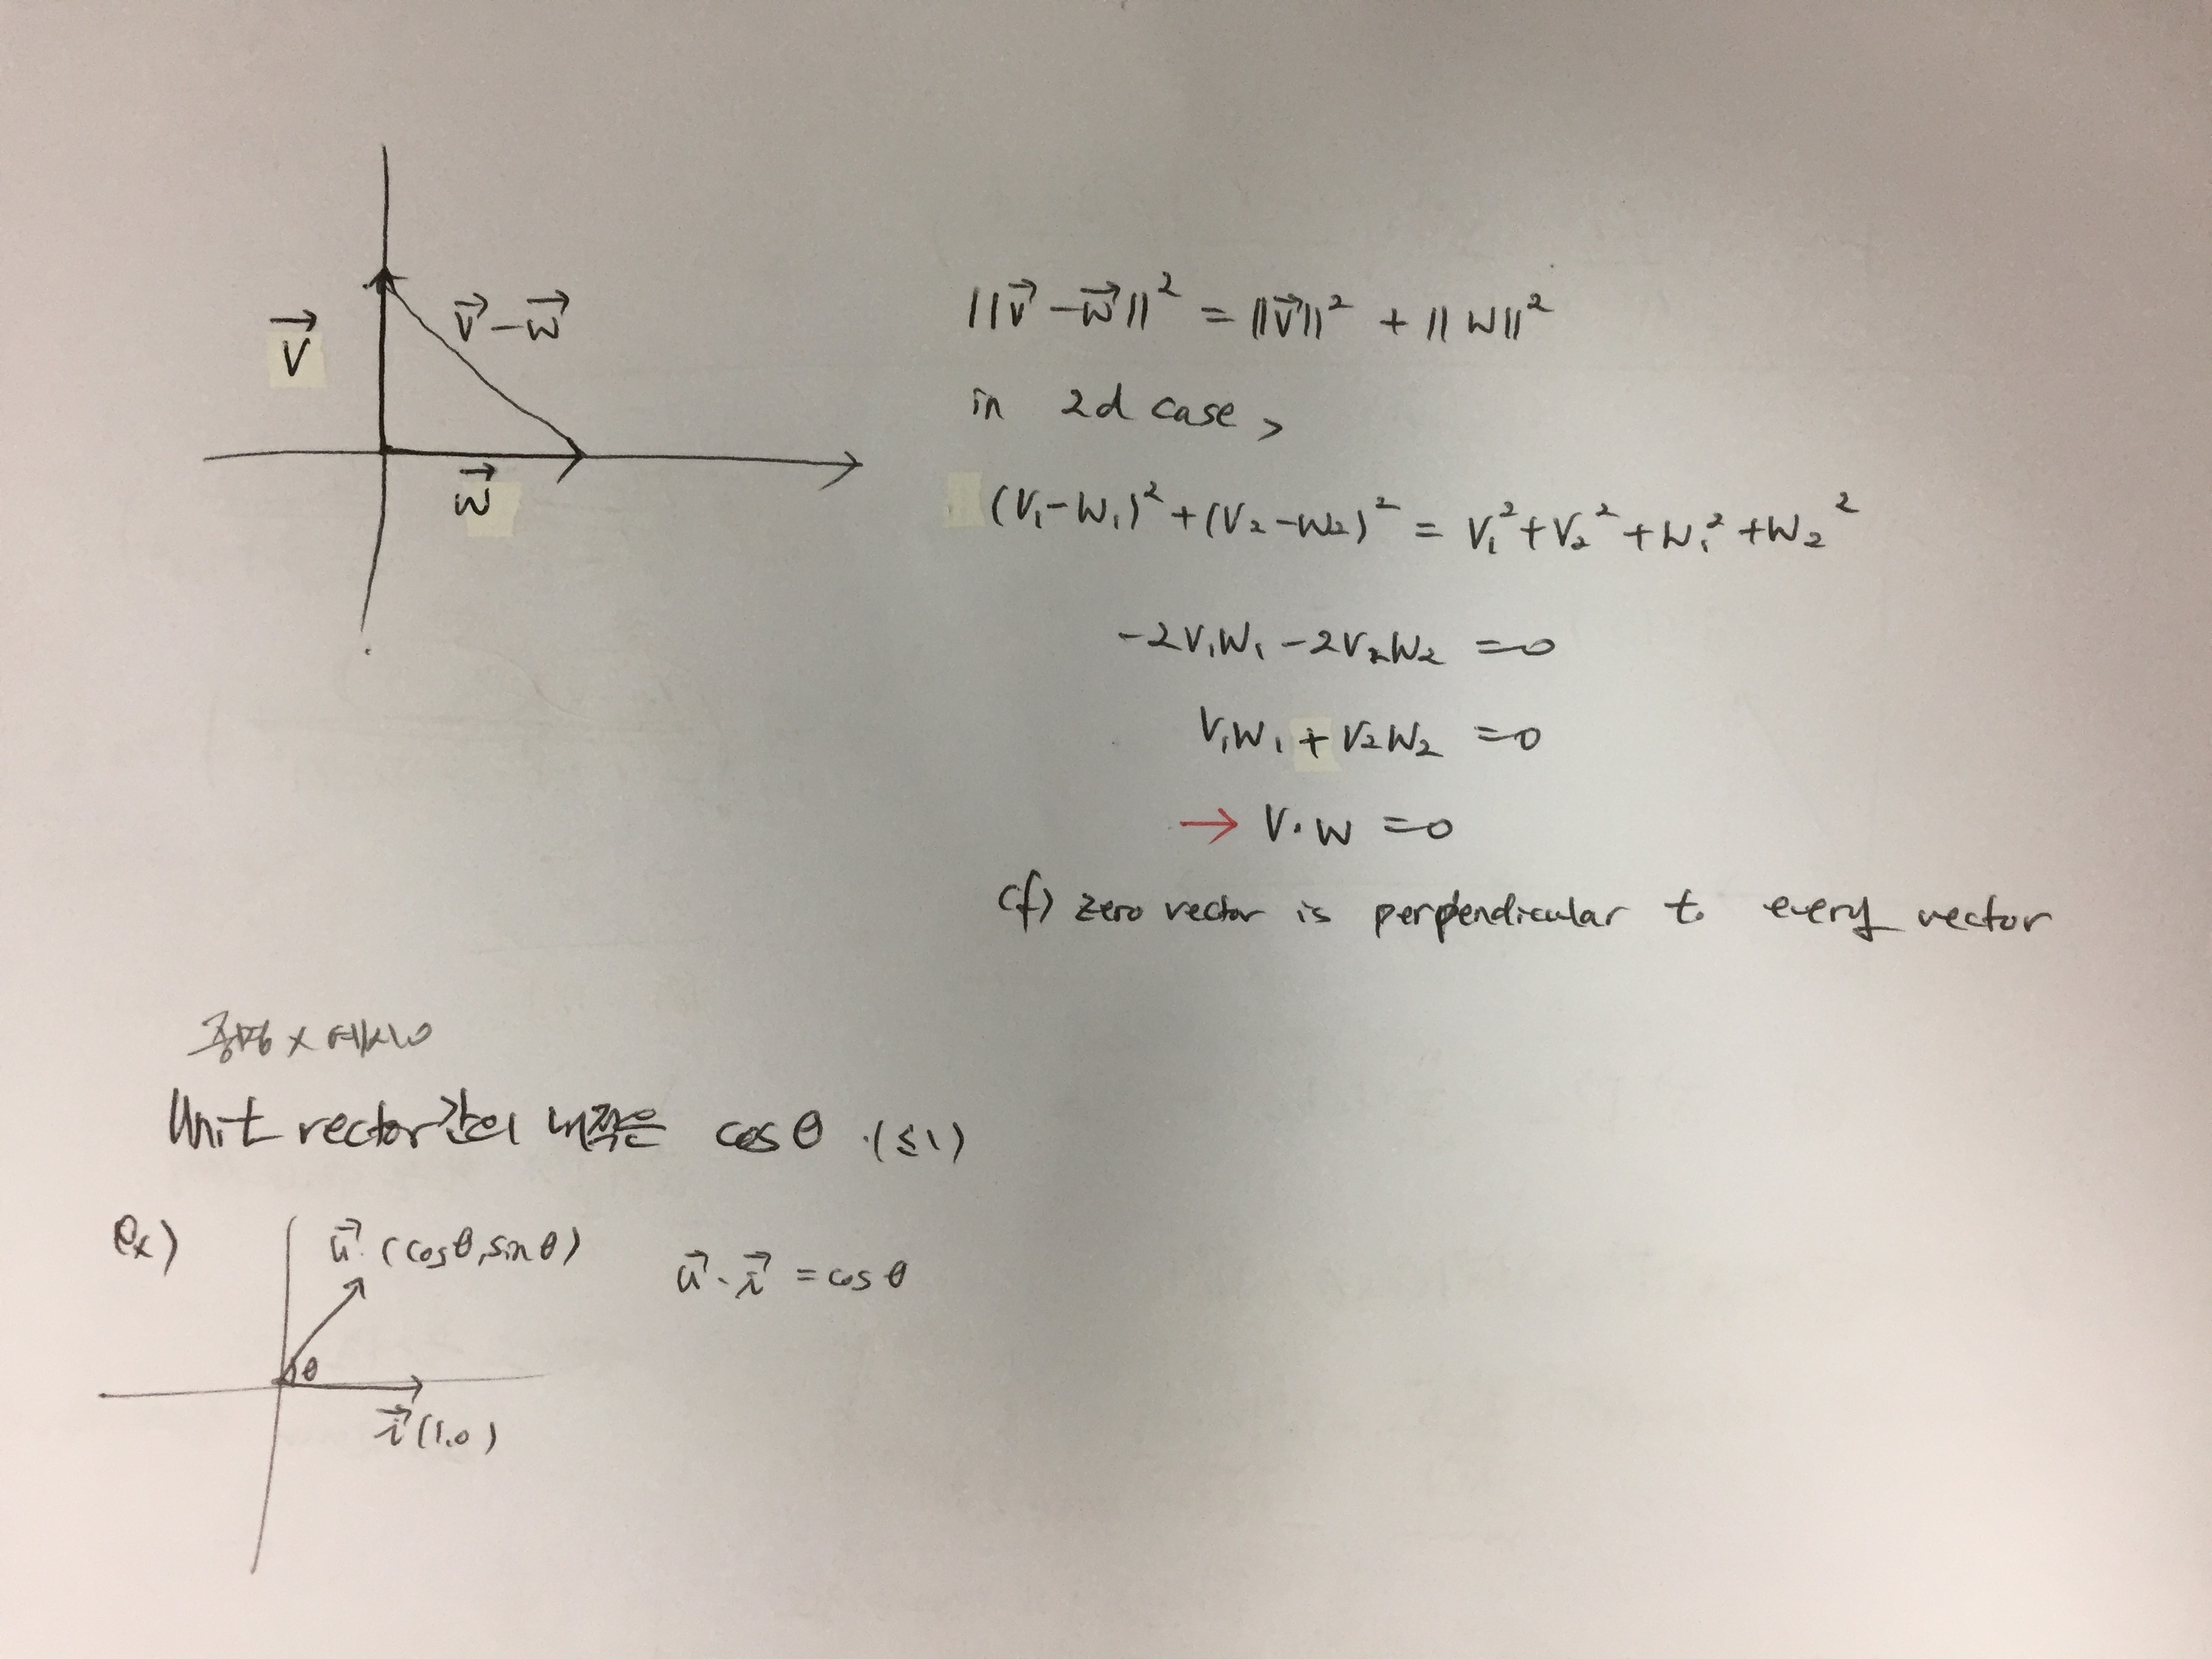 v⃗
v⃗-w⃗
w⃗
||v⃗-w⃗||² = ||v⃗||² + ||w||²
in 2d case,
(v₁-w₁)²+(v₂-w₂)² = v₁²+v₂²+w₁²+w₂²
-2v₁w₁-2v₂w₂ =0
v₁w₁+v₂w₂ =0
→ v·w =0
cf) zero vector is perpendicular to every vector
증명 x 예시 o
Unit vector간의 내적은 cosθ (≤1)
ex)
u⃗ (cosθ, sinθ)
u⃗·i⃗ = cosθ
θ
i⃗ (1,0)